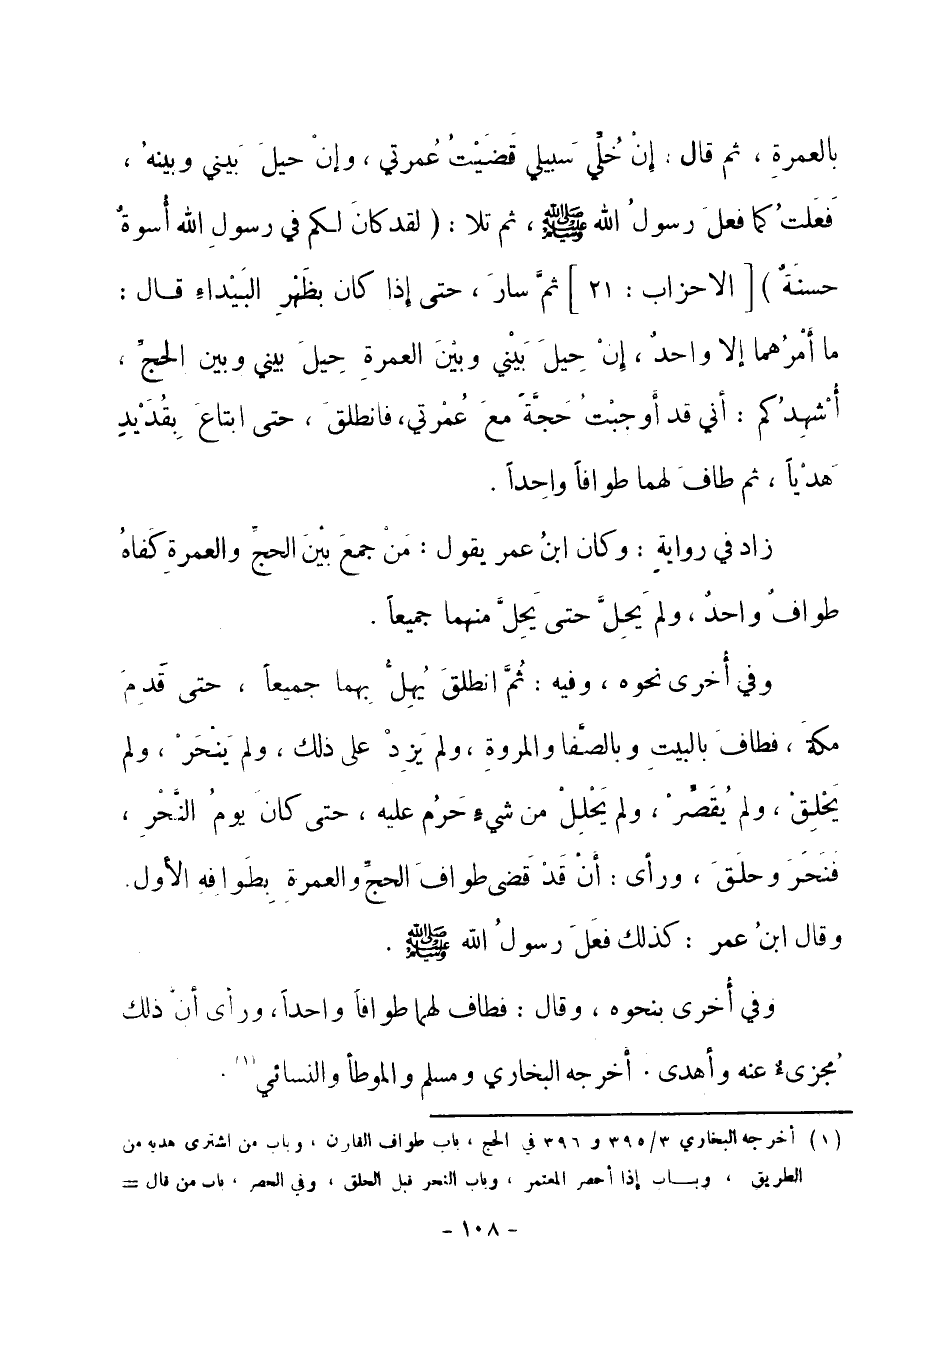 بالعمرةِ ، ثم قال : إنْ خُلِّيَ سَبيلي قَضَيْتُ عُمرتي ، وإنْ حيلَ بَيني وبينهُ ،
فَعَلتُ كما فعلَ رسولُ الله ﷺ ، ثم تلا : ( لقد كانَ لكم في رسولِ الله أُسوةٌ
حسنَةٌ ) [ الاحزاب : ٢١ ] ثمَّ سارَ ، حتى إذا كان بظَهْرِ البَيْداءِ قال :
ما أَمْرُهما إلا واحدٌ ، إنْ حِيلَ بَيْني وبيْنَ العمرةِ حِيلَ بيني وبين الحجِّ ،
أُشهِدُكم : أني قد أَوجبْتُ حَجَّةً معَ عُمْرتي، فانطلقَ ، حتى ابتاعَ بِقُدَيْدٍ
هَدْياً ، ثم طافَ لهما طوافاً واحِداً .
زاد في روايةٍ : وكان ابنُ عمر يقول : مَنْ جمعَ بيْنَ الحجِّ والعمرةِ كَفاهُ
طوافٌ واحدٌ ، ولم يَحِلَّ حتى يَحِلَّ منهما جميعاً .
وفي أُخرى نحوه ، وفيه : ثُمَّ انطلقَ يُهِلُّ بِهما جميعاً ، حتى قَدِمَ
مكةَ ، فطافَ بالبيتِ وبالصَّفا والمروةِ ، ولم يَزِدْ على ذلك ، ولم يَنْحَرْ ، ولم
يَحْلِقْ ، ولم يُقَصِّرْ ، ولم يَحْلِلْ من شيءٍ حَرُم عليه ، حتى كانَ يومُ النَّحْرِ ،
فَنَحَرَ وحلَقَ ، ورأى : أنْ قَدْ قَضى طوافَ الحجِّ والعمرةِ بِطَوافِهِ الأول.
وقال ابنُ عمر : كذلك فعَلَ رسولُ الله ﷺ .
وفي أُخرى بنحوه ، وقال : فطاف لهما طوافاً واحداً، ورأى أنَّ ذلك
مُجزىءٌ عنه وأهدى . أخرجه البخاري ومسلم والموطأ والنسائي (١) .
(١) أخرجه البخاري ٣٩٥/٣ و ٣٩٦ في الحج ، باب طواف القارن ، وباب من اشترى هديه من
الطريق ، وبـــاب إذا أحصر المعتمر ، وباب النحر قبل الحلق ، وفي الحصر ، باب من قال =
- ١٠٨ -